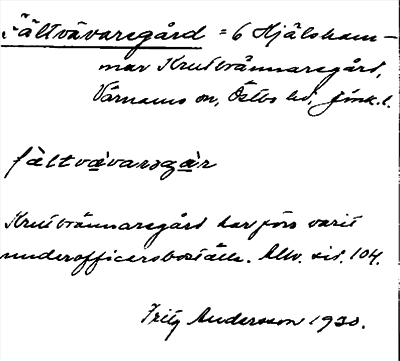 Fältvävaregård = 6 Hjälsham-
mar Krutbrännaregård,
Värnamo sn, Östbo hd, Jönk. l.
fàltvävarəgàr
Krutbrännaregård har förr varit
underofficersboställe. Allv. sid. 104.
Fritz Andersson 1930.